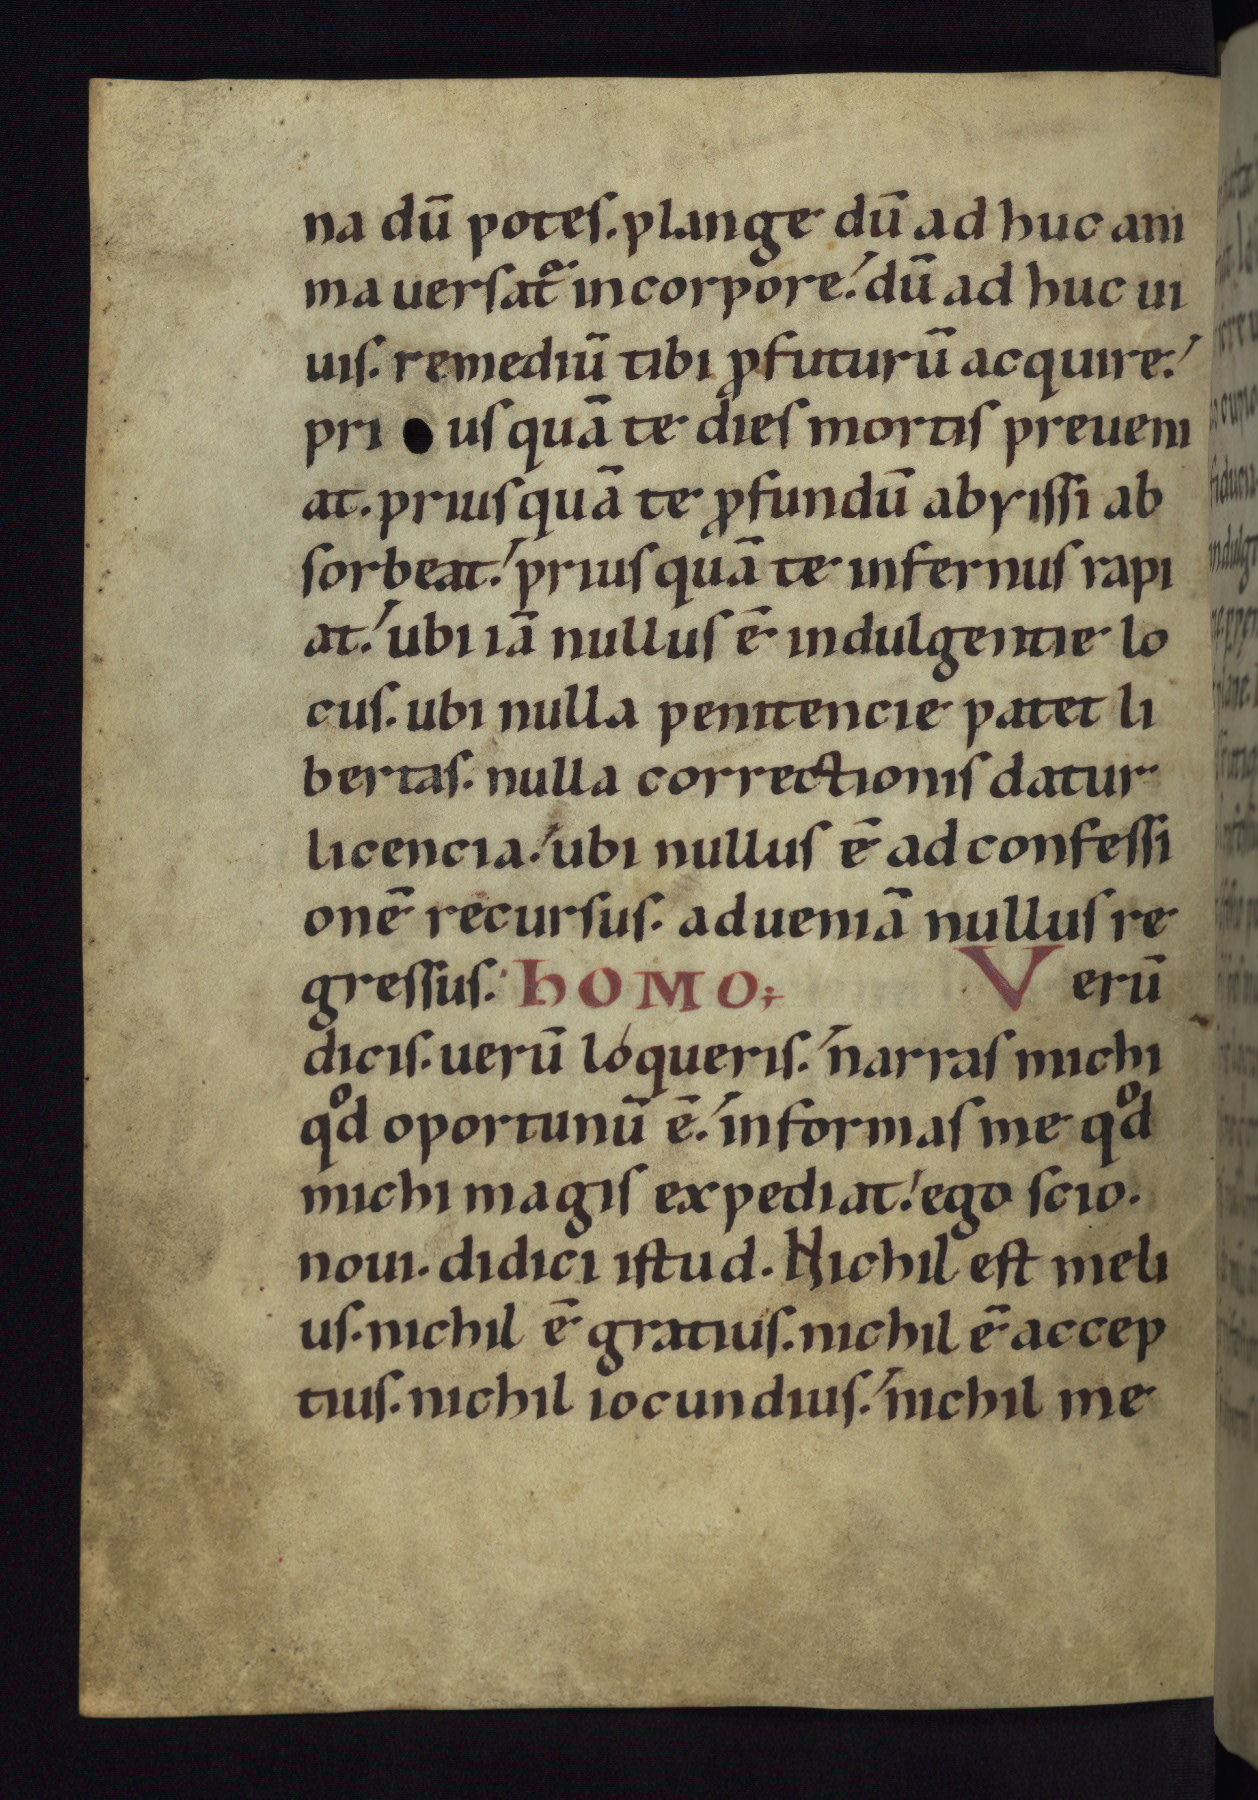 na dū potes. plange dū ad huc ani
ma uersat᷑ in corpore. dū ad huc ui
uis. remediū tibi ꝓfuturū acquire.
pri us quā te dies mortis preueni
at. prius quā te ꝓfundū abyssi ab
sorbeat. prius quā te infernus rapi
at. ubi iā nullus ē indulgentie lo
cus. ubi nulla penitencie patet li
bertas. nulla correctionis datur
licencia. ubi nullus ē ad confessi
onē recursus. ad ueniā nullus re
gressus. hOMO; Verū
dicis. uerū lóqueris. narras michi
qͦd oportunū ē. informas me qͦd
michi magis expediat. ego scio.
noui. didici istud. Nichil est meli
us. nichil ē gratius. nichil ē accep
tius. nichil iocundius. nichil me